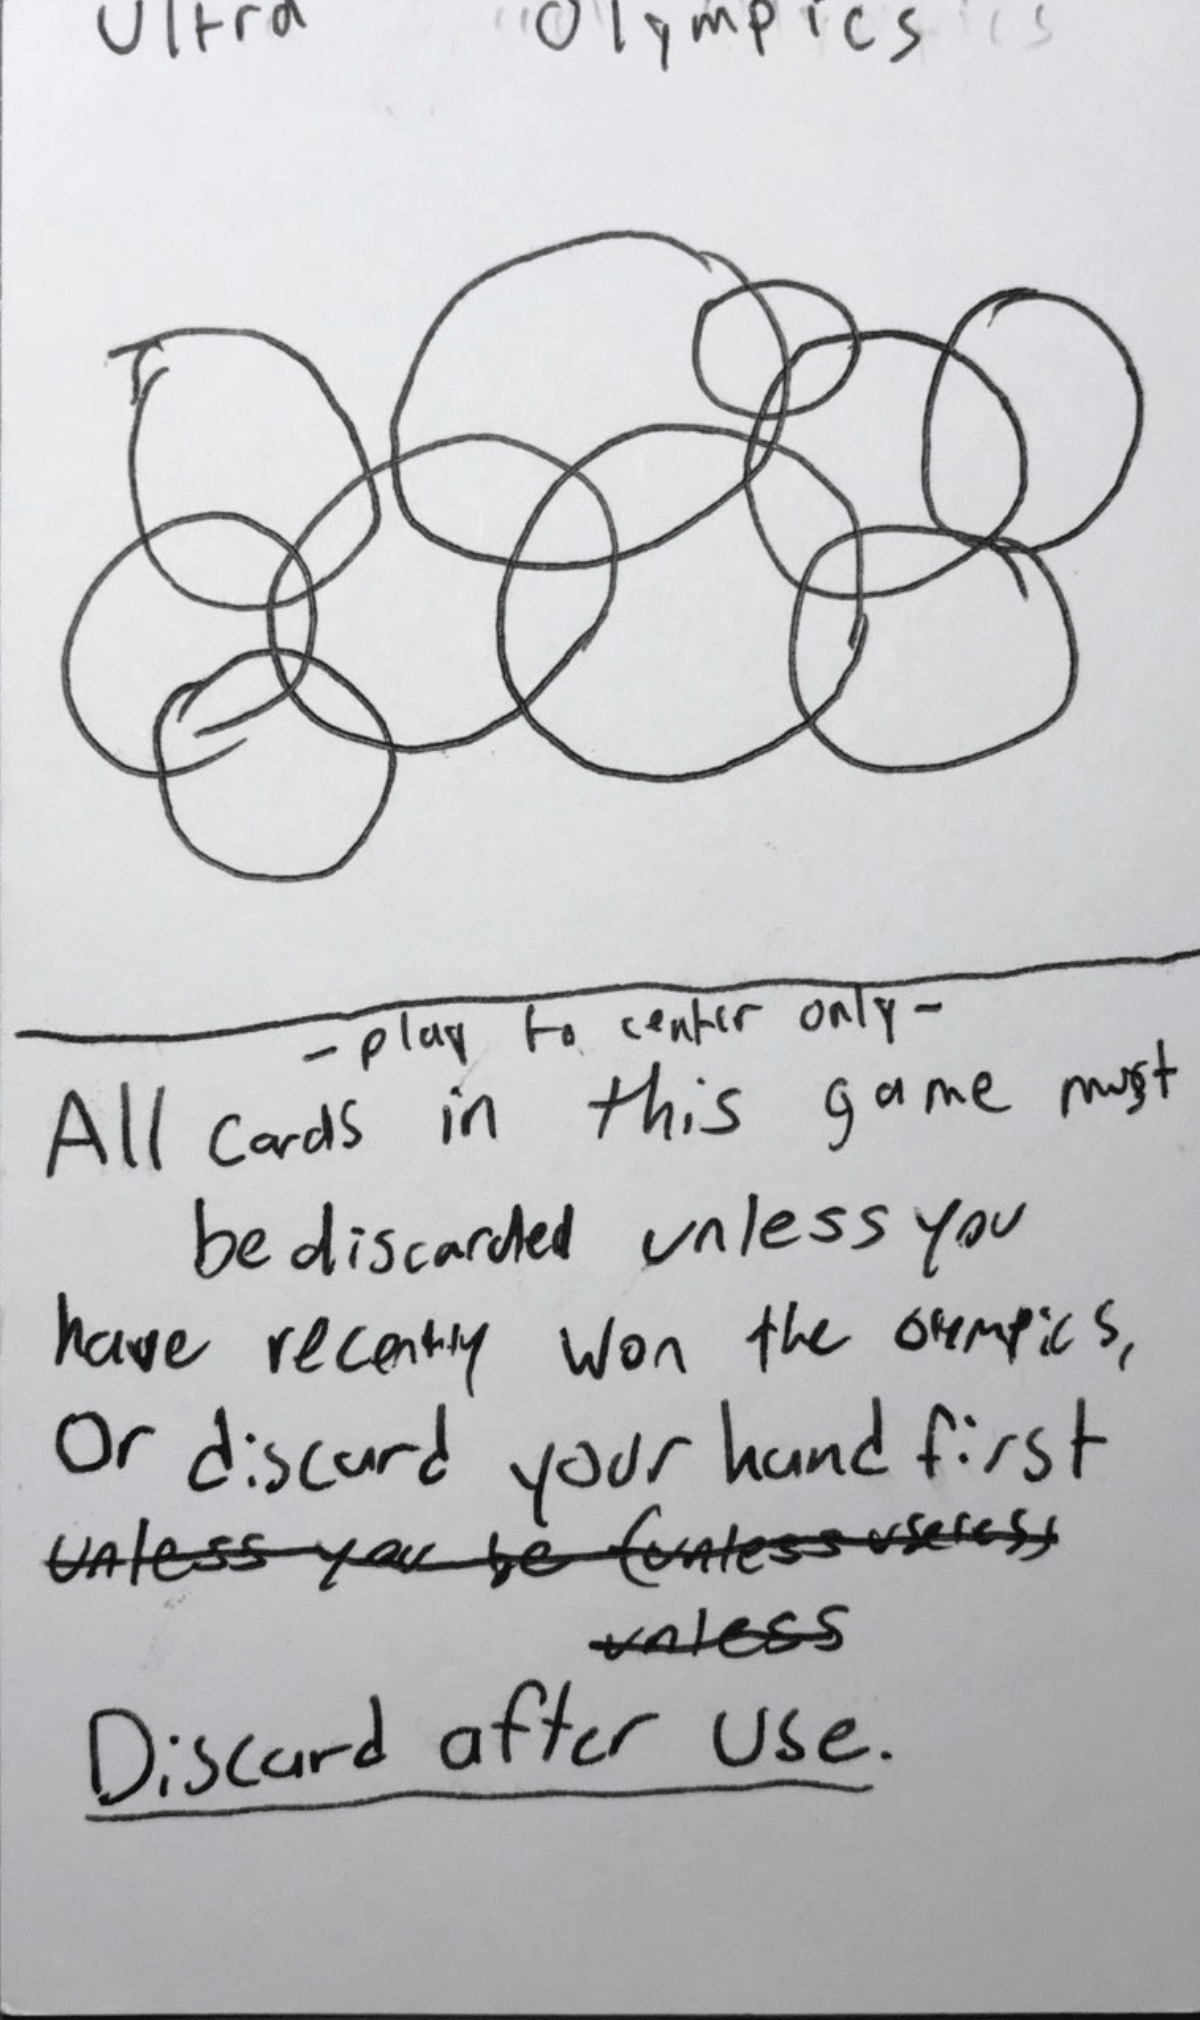 Ultra Olympics
- play to center only -
All cards in this game must
be discarded unless you
have recently won the olympics,
Or discard your hand first
unless you be (unless useless)
unless
Discard after use.